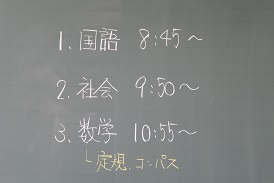 1. 国語 8:45～
2. 社会 9:50～
3. 数学 10:55～
└定規、コンパス